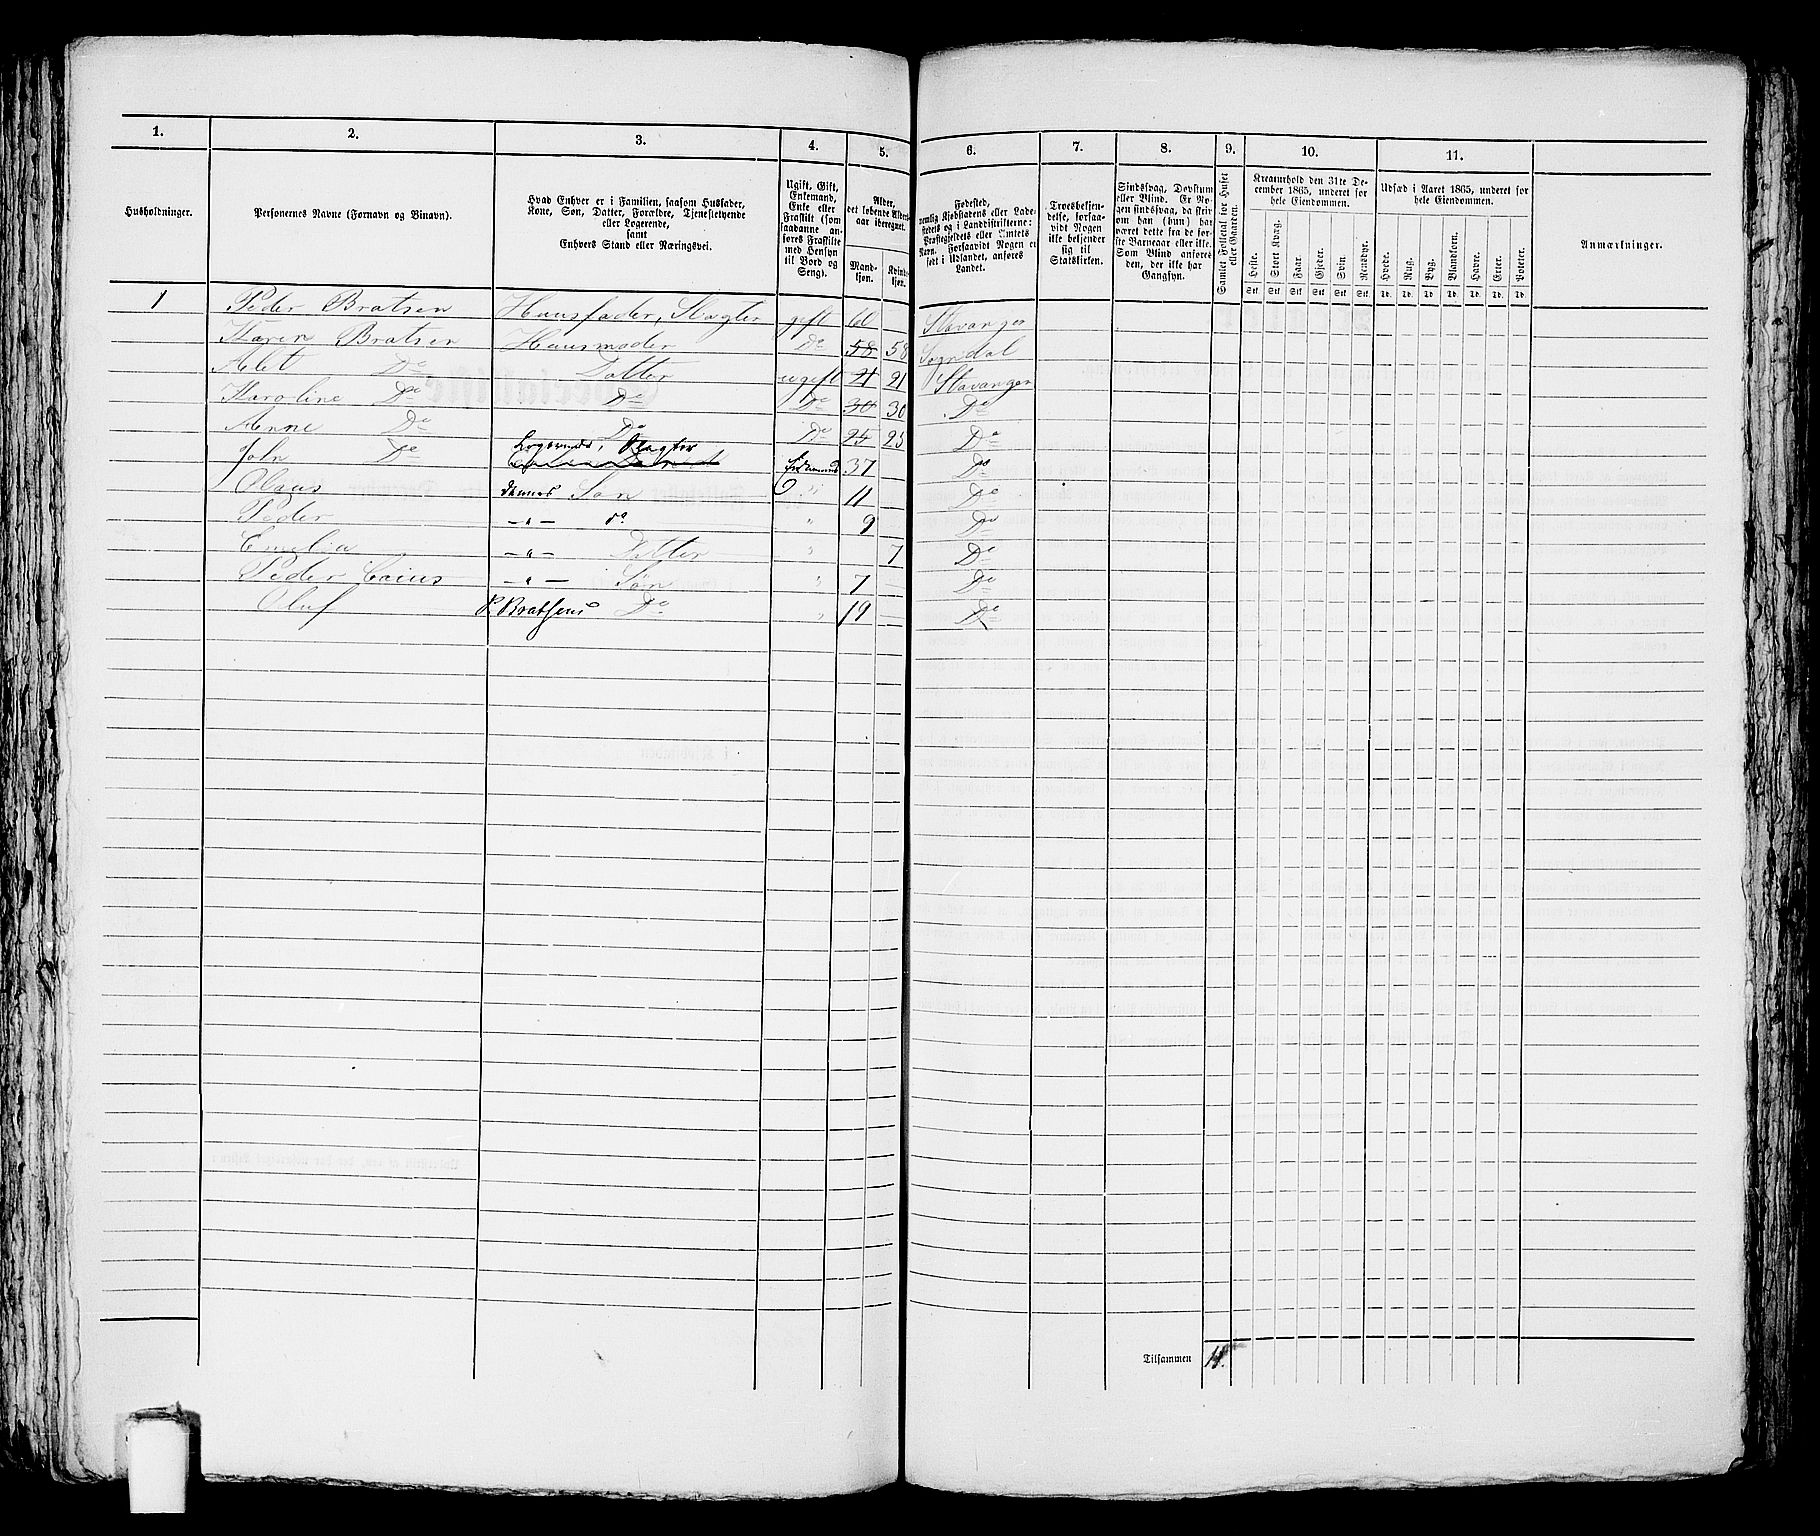 1. 2. 3. 4. 5. 6. 7. 8. 9. 10. 11.
Husholdninger.
Personernes Navne (Fornavn og Binavn).
Hvad Enhver er i Familien, saasom Husfader,
Kone, Søn, Datter, Forældre, Tjenestetyende
eller Logerende,
samt
Enhvers Stand eller Næringsvei.
Ugift, Gift,
Enkemand,
Enke eller
Fraskilt (som
saadanne an-
føres Fraskilte
med Hensyn
til Bord og
Seng).
Alder,
det løbende Alders-
aar iberegnet.
Mand-
kjøn.
Kvinde-
kjøn.
Fødested,
nemlig Kjøbstadens eller Lade-
stedets og i Landdistrikterne:
Præstegjeldets eller Amtets
Navn. Forsaavidt Nogen er
født i Udlandet, anføres
Landet.
Troesbekjen-
delse, forsaa-
vidt Nogen
ikke bekjender
sig til
Statskirken.
Sindssvag, Døvstum
eller Blind. Er No-
gen sindssvag, da skri-
ves om han (hun) har
været dette fra de før-
ste Barneaar eller ikke.
Som Blind anføres
den, der ikke har
Gangsyn.
Samlet Folketal for Huset
eller Gaarden.
Kreaturhold den 31te De-
cember 1865, underet for
hele Eiendommen.
Heste. Stort Kvæg. Faar. Gjeder. Svin. Rensdyr.
Stk. Stk. Stk. Stk. Stk. Stk.
Udsæd i Aaret 1865, underet for
hele Eiendommen.
Hvede. Rug. Byg. Blandkorn. Havre. Erter. Poteter.
Td. Td. Td. Td. Td. Td. Td.
Anmærkninger.
1 Peder Bratsen Huusfader, Slagter gift 60 Stavanger
Karen Bratsen Huusmoder Do 58 58 Sogndal
Alet Do Datter ugift 21 21 Stavanger
Karoline Do Do Do 30 30 Do
Anne Do Do Do 25 25 Do
John Do Logerende, Slagter Enkemand 37 Do
Olaus dennes Søn " 11 Do
Peder -"- do " 9 Do
Emelia -"- Datter " 7 Do
Peder Caius -"- Søn " 7 Do
Oluf P. Bratsens Do " 19 Do
Tilsammen 11.